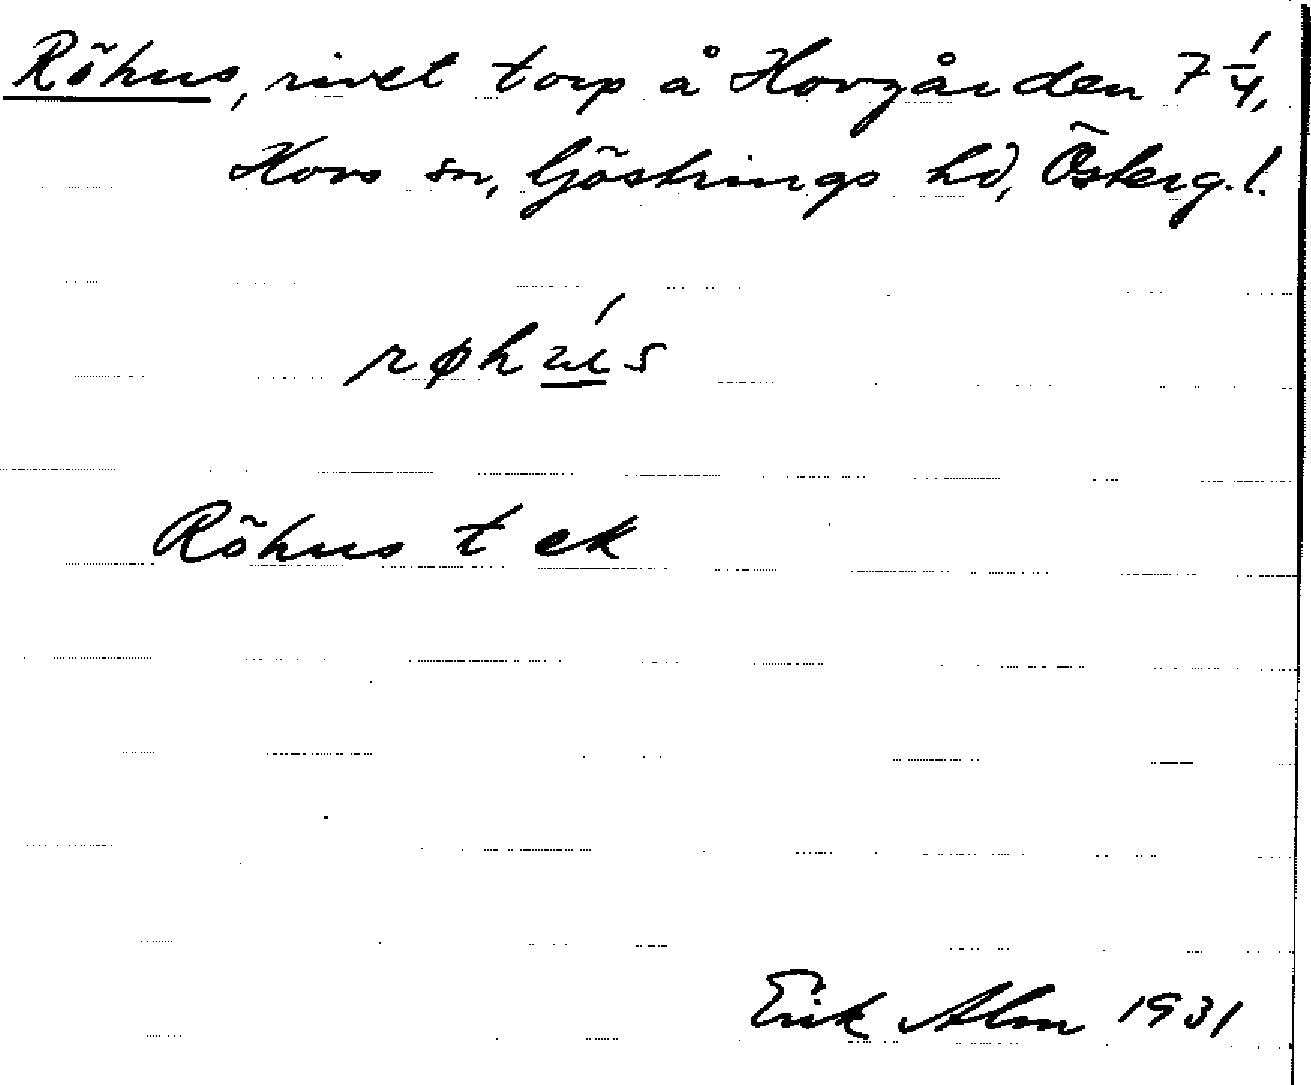 Röhus, rivet torp å Hovgården 7 1/4,
Hovs sn, Göstrings hd, Österg. l.
røhús
Röhus t ek
Erik Alm 1931